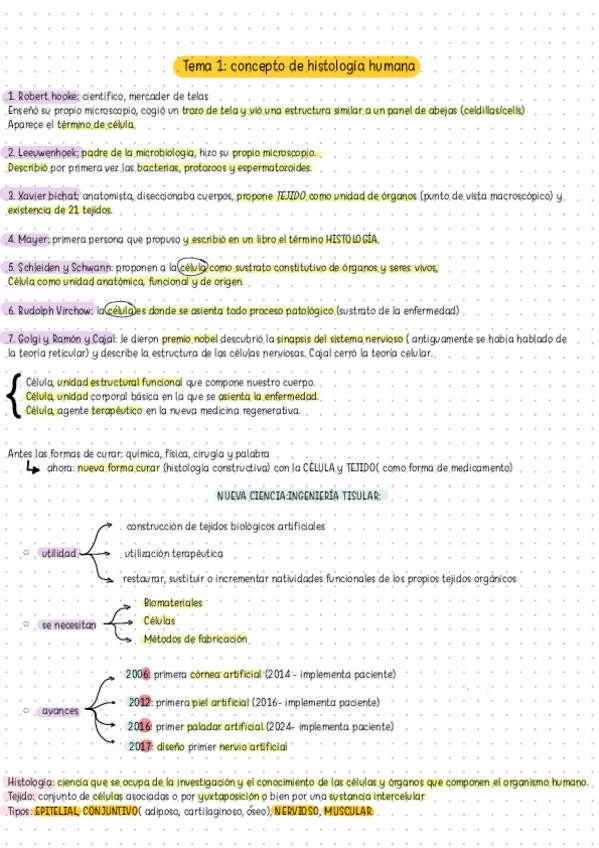 Tema 1: concepto de histología humana
1. Robert hooke: científico, mercader de telas
Enseñó su propio microscopio, cogió un trozo de tela y vió una estructura similar a un panel de abejas (celdillas/cells)
Aparece el término de célula.
2. Leeuwenhoek: padre de la microbiología, hizo su propio microscopio.
Describió por primera vez las bacterias, protozoos y espermatozoides.
3. Xavier bichat: anatomista, diseccionaba cuerpos, propone TEJIDO como unidad de órganos (punto de vista macroscópico) y
existencia de 21 tejidos.
4. Mayer: primera persona que propuso y escribió en un libro el término HISTOLOGÍA.
5. Schleiden y Schwann: proponen a la célula como sustrato constitutivo de órganos y seres vivos,
Célula como unidad anatómica, funcional y de origen.
6. Rudolph Virchow: la célula es donde se asienta todo proceso patológico (sustrato de la enfermedad)
7. Golgi y Ramón y Cajal: le dieron premio nobel descubrió la sinapsis del sistema nervioso ( antiguamente se había hablado de
la teoría reticular) y describe la estructura de las células nerviosas. Cajal cerró la teoría celular.
Célula, unidad estructural funcional que compone nuestro cuerpo.
Célula, unidad corporal básica en la que se asienta la enfermedad.
Célula, agente terapéutico en la nueva medicina regenerativa.
Antes las formas de curar: química, física, cirugía y palabra
ahora: nueva forma curar (histología constructiva) con la CÉLULA y TEJIDO( como forma de medicamento)
NUEVA CIENCIA:INGENIERÍA TISULAR:
construcción de tejidos biológicos artificiales
utilidad
utilización terapéutica
restaurar, sustituir o incrementar natividades funcionales de los propios tejidos orgánicos
Biomateriales
se necesitan
Células
Métodos de fabricación
2006: primera córnea artificial (2014 - implementa paciente)
2012: primera piel artificial (2016- implementa paciente)
avances
2016: primer paladar artificial (2024- implementa paciente)
2017: diseño primer nervio artificial
Histología: ciencia que se ocupa de la investigación y el conocimiento de las células y órganos que componen el organismo humano.
Tejido: conjunto de células asociadas o por yuxtaposición o bien por una sustancia intercelular
Tipos: EPITELIAL, CONJUNTIVO( adiposo, cartilaginoso, óseo), NERVIOSO, MUSCULAR